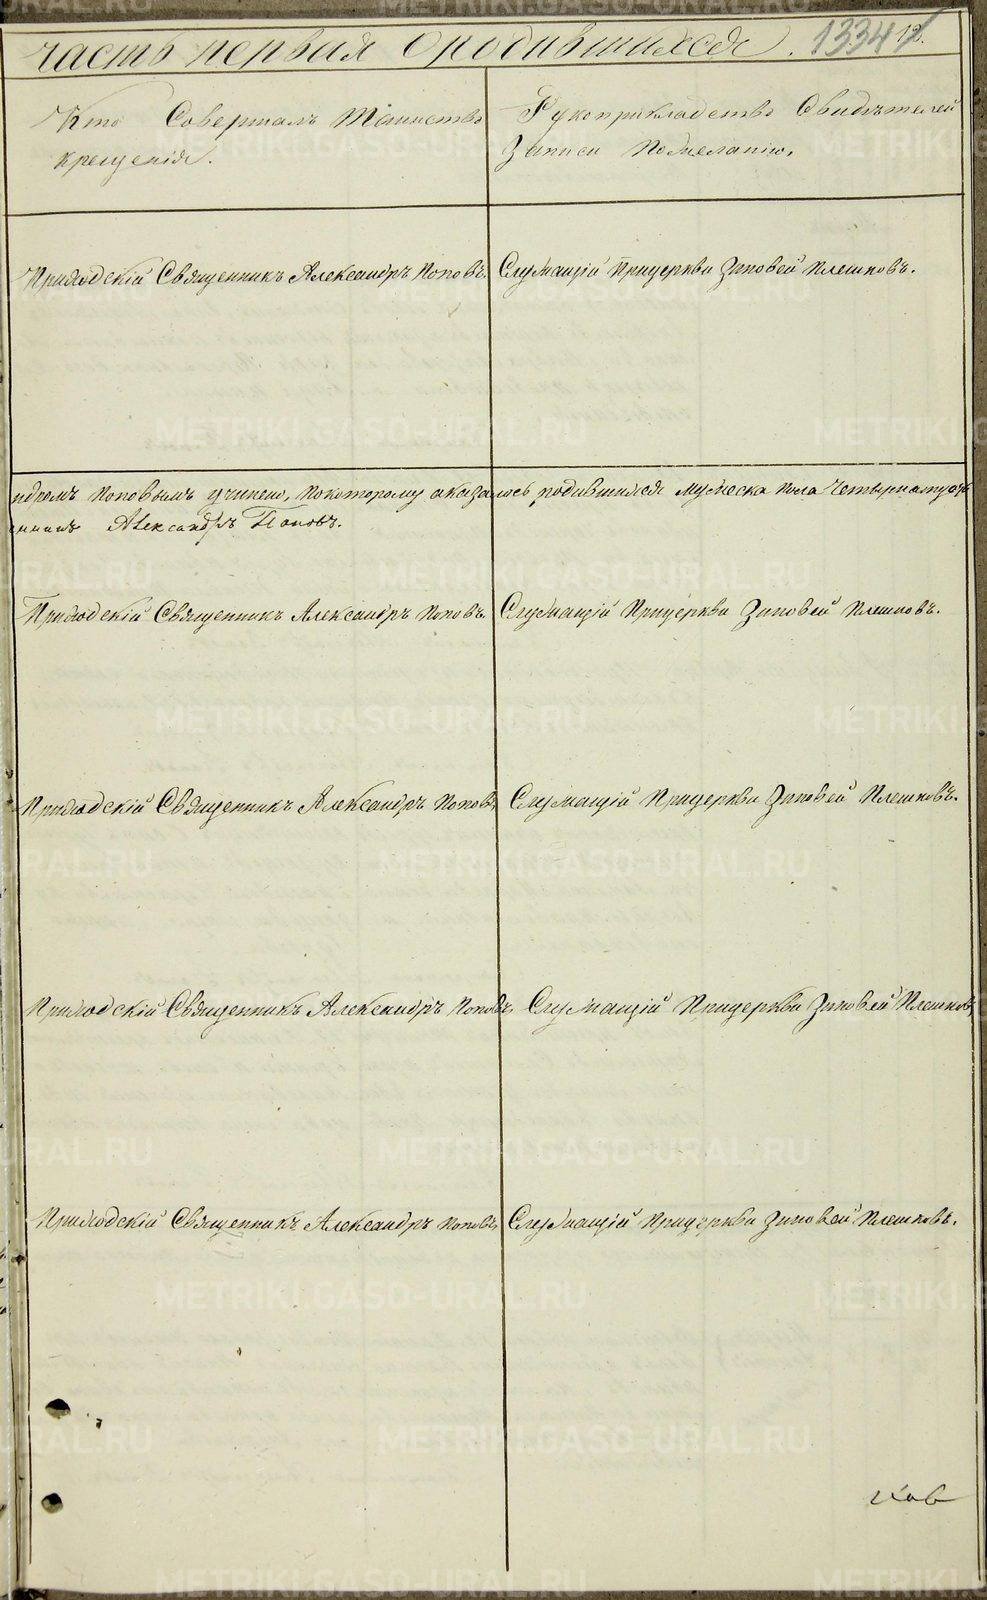 часть первая о родившихся. 1334
Кто Совершалъ Таинство
крещенія.
Рукоприкладство Свидѣтелей
Записи По желанію.
Приходскій Священникъ Александръ Поповъ. Служащій Прицеркви Зиновей Плешковъ.
ндромъ Поповымъ учинено, покоторому оказалось родившихся мужеска пола четырнатцать
Александръ Поповъ.
Приходскій Священникъ Александръ Поповъ. Служащій Прицеркви Зиновей Плешковъ.
Приходскій Священникъ Александръ Поповъ, Служащій Прицеркви Зиновей Плешковъ.
Приходскій Священникъ Александръ Поповъ, Служащій Прицеркви Зиновей Плешковъ
Приходскій Священникъ Александръ Поповъ, Служащій Прицеркви Зиновей Плешковъ.
METRIKI.GASO-URAL.RU